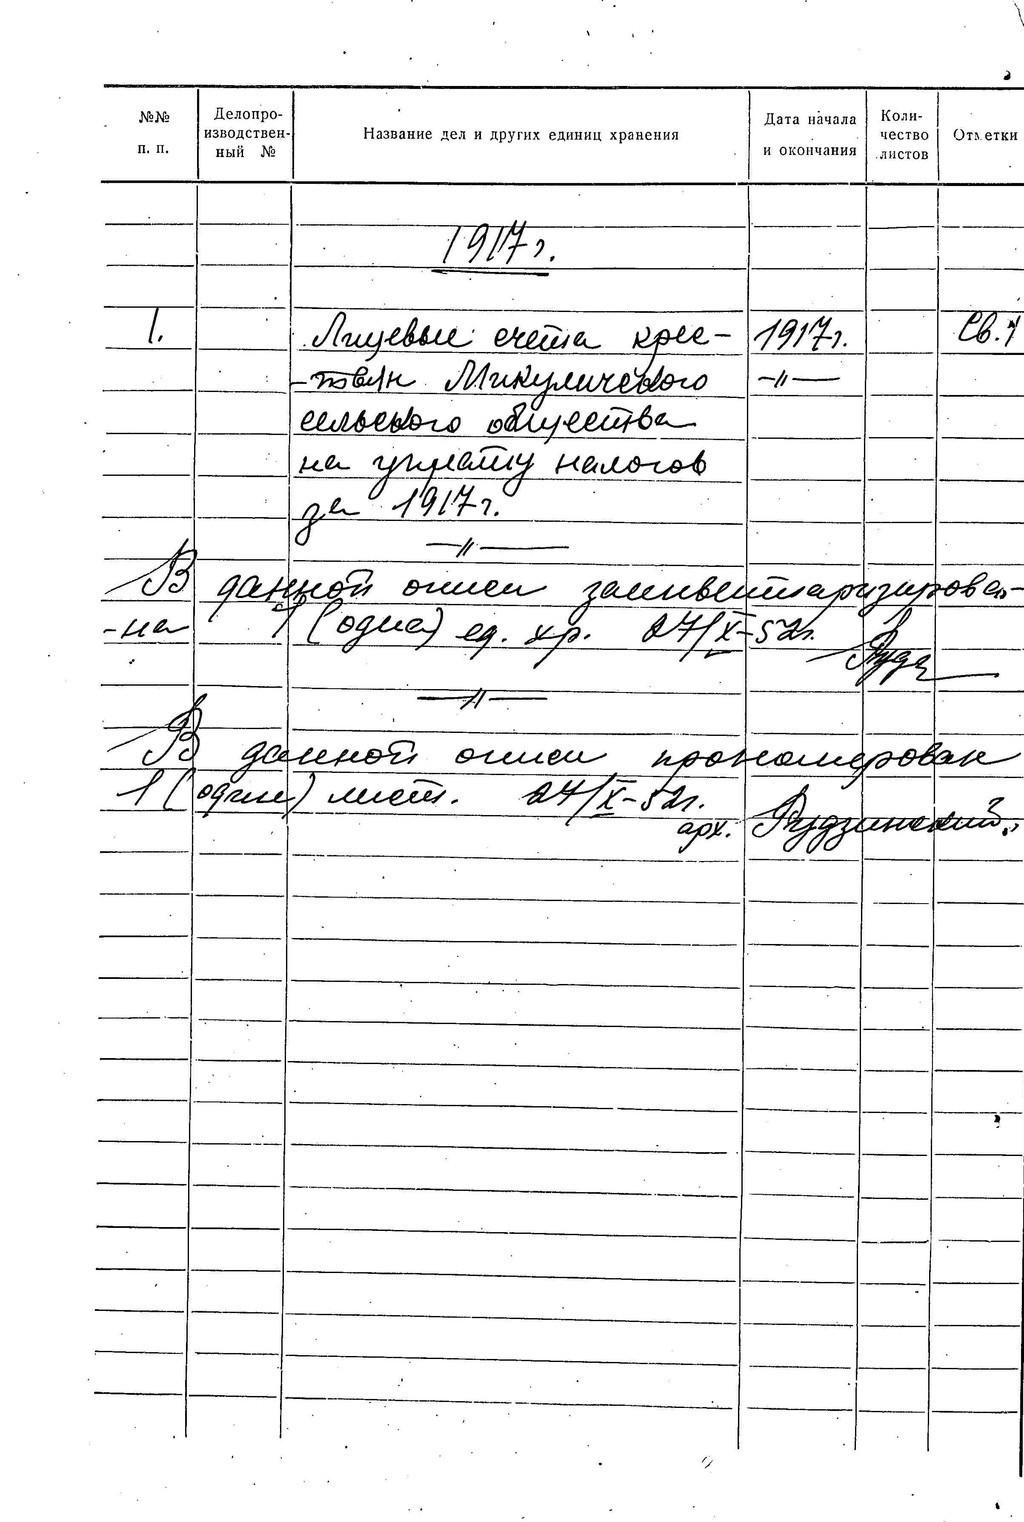 №№ п. п. Делопро-изводствен-ный № Название дел и других единиц хранения Дата начала и окончания Коли-чество листов Отметки
1917 г.
1. Лицевые счета крес- 1917 г. Св. 1
-тьян Микуличского -〃-
сельского общества
на уплату налогов
за 1917 г.
-〃-
В данной описи заинвентаризирова-
-на 1 (одна) ед. хр. 27/X-52г.
-〃-
В данной описи прономерован
1 (один) лист. 27/X-52г.
арх. Рудзинский